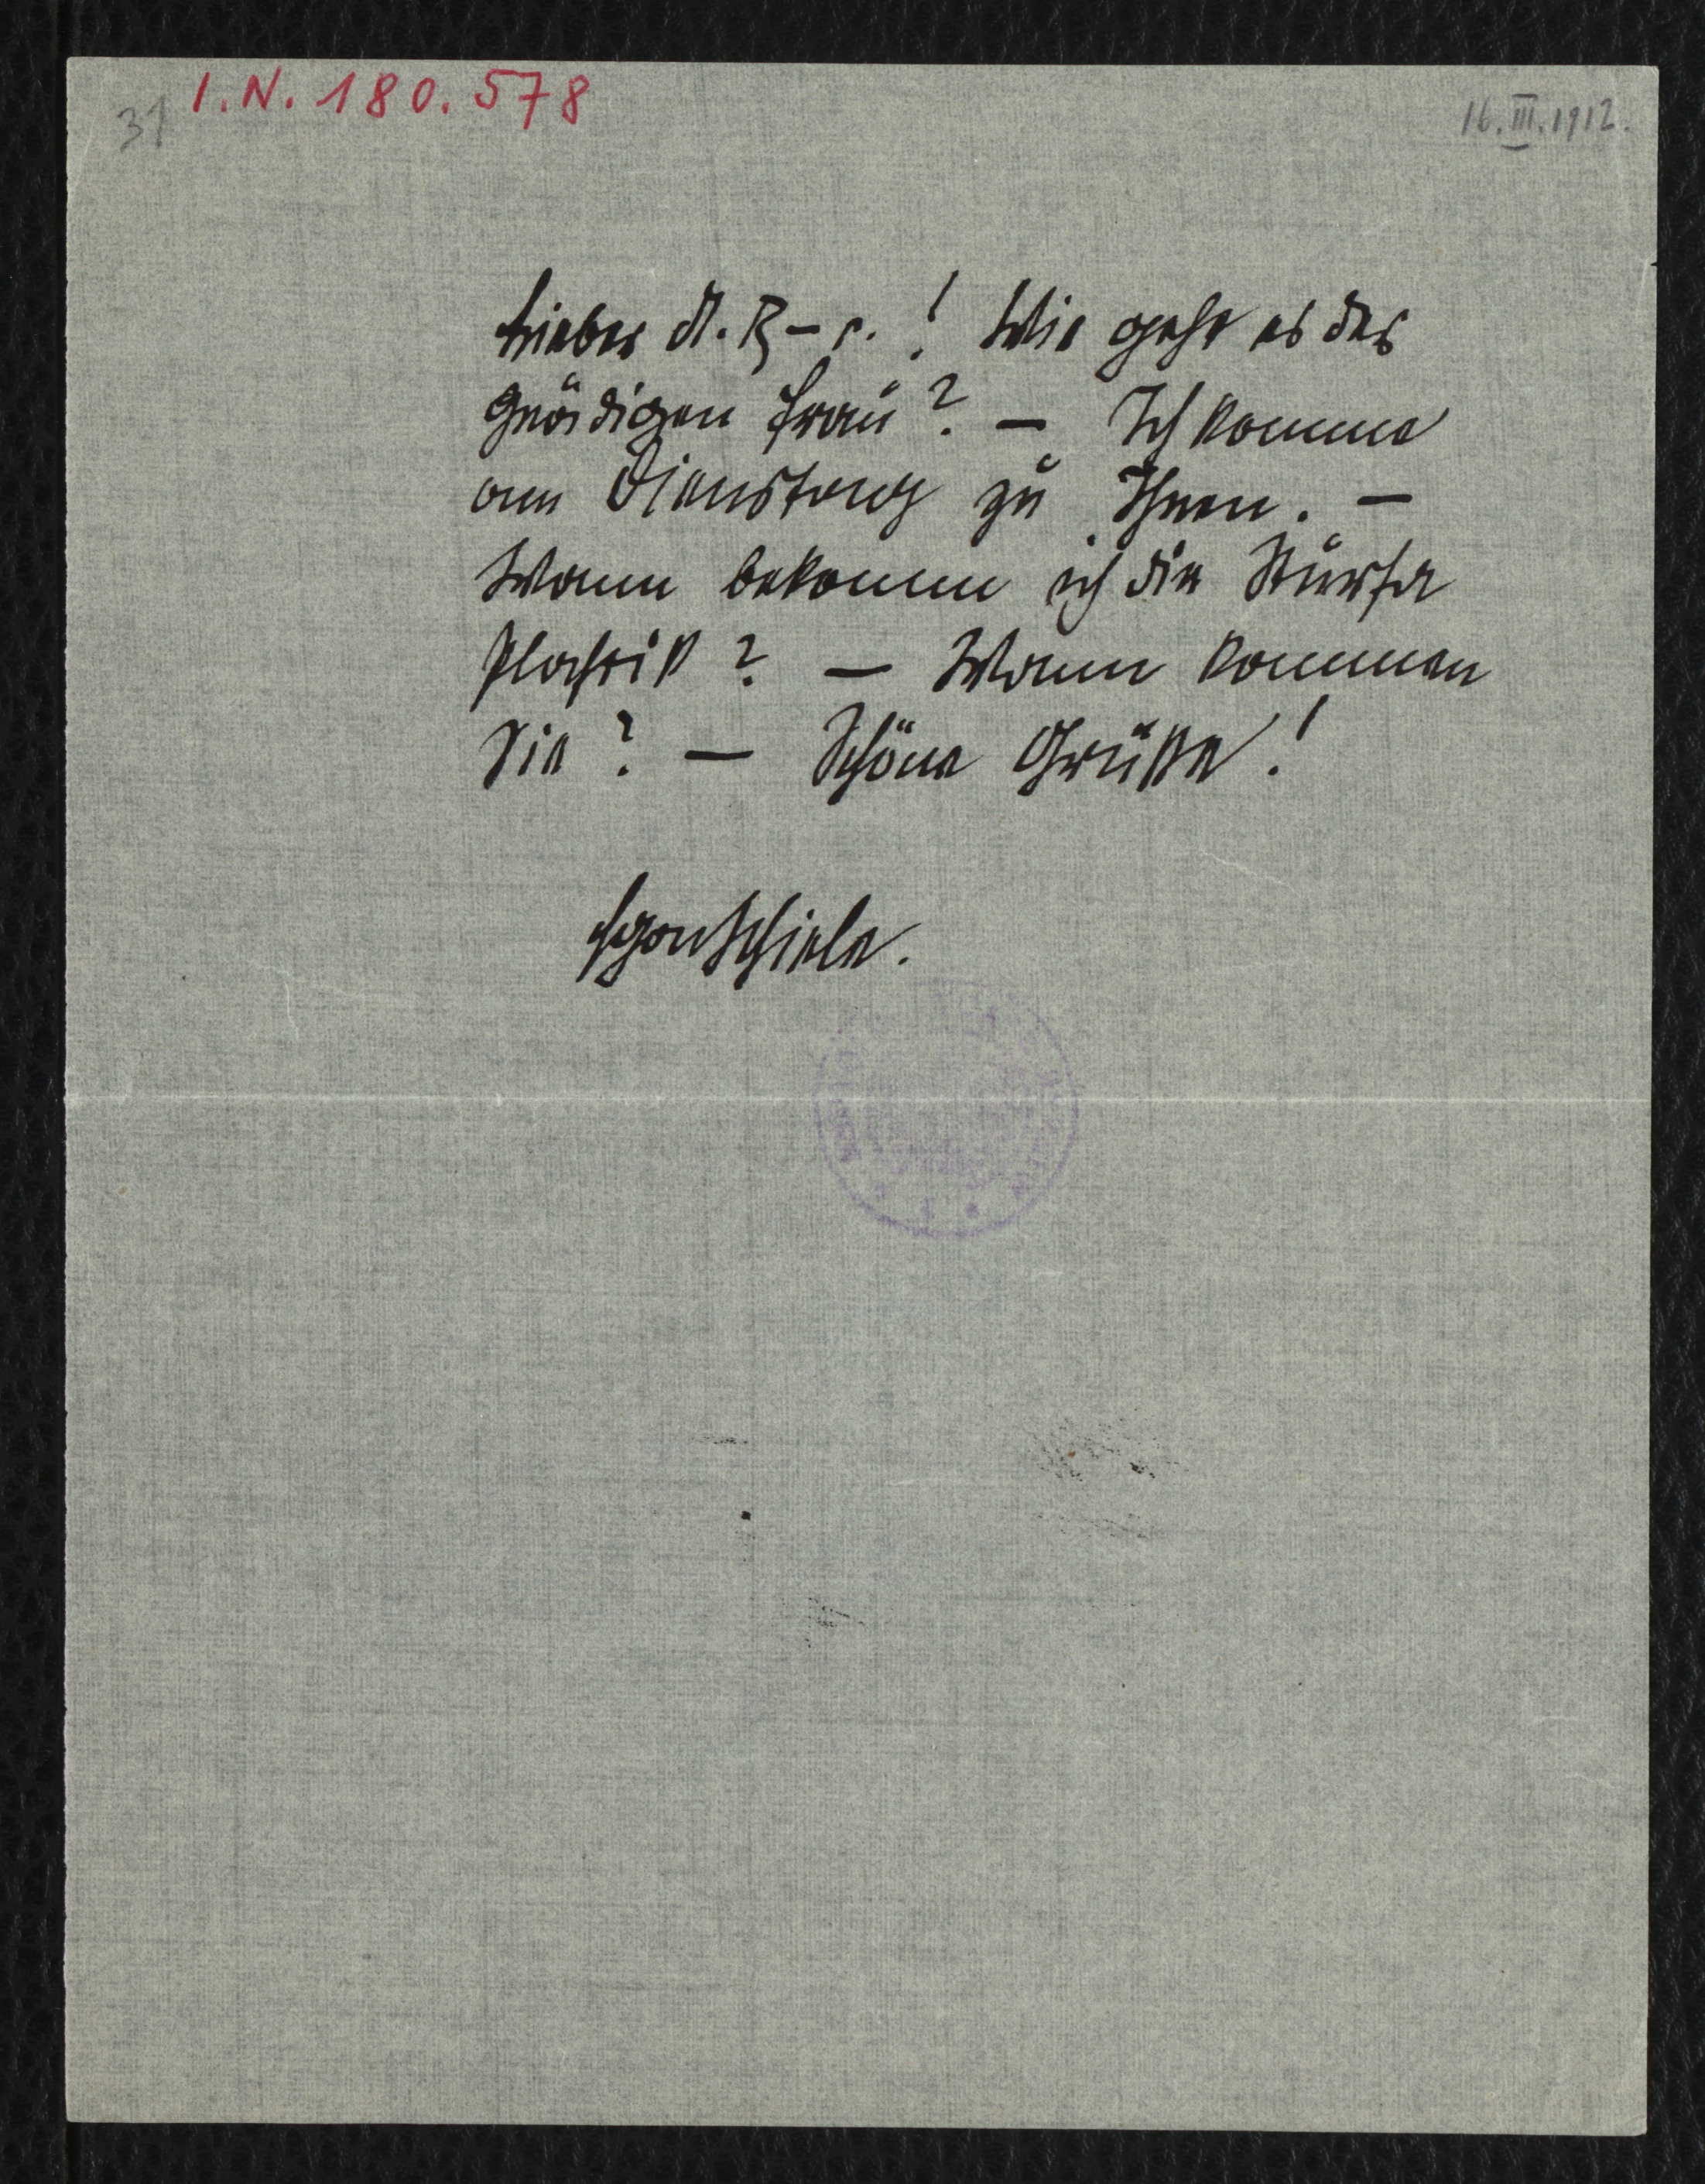 31 I.N. 180.578
16.III.1912.
Lieber A. R–r.! Wie geht es der
gnädigen Frau? — Ich komme
am Dienstag zu Ihnen. —
Wann bekomm ich die
Plastik? — Wann kommen
Sie? — Schöne Grüße!
Egon Schiele.